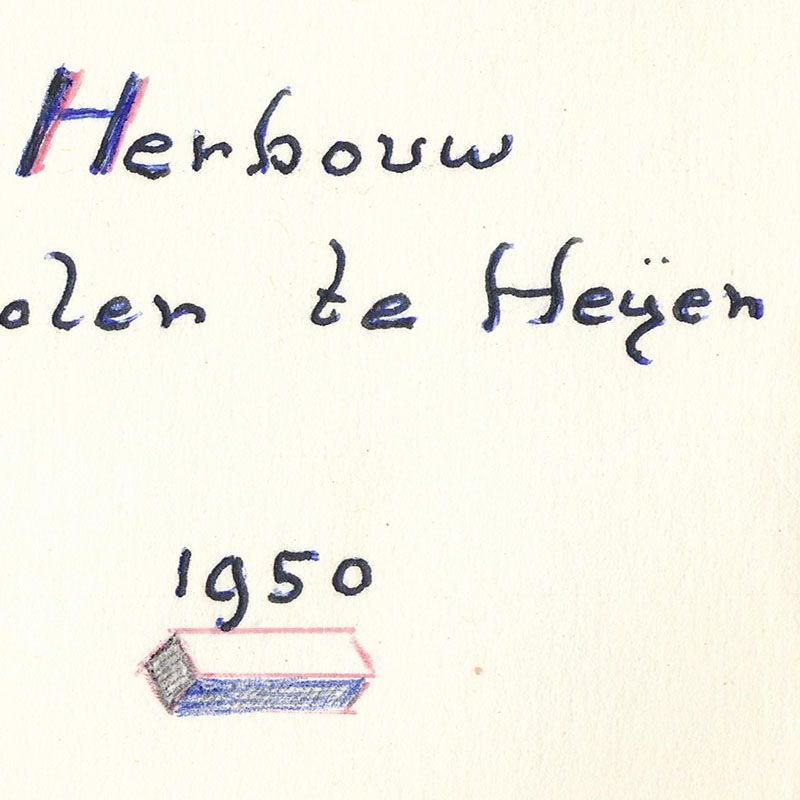 Herbouw
olen te Heÿen
1950